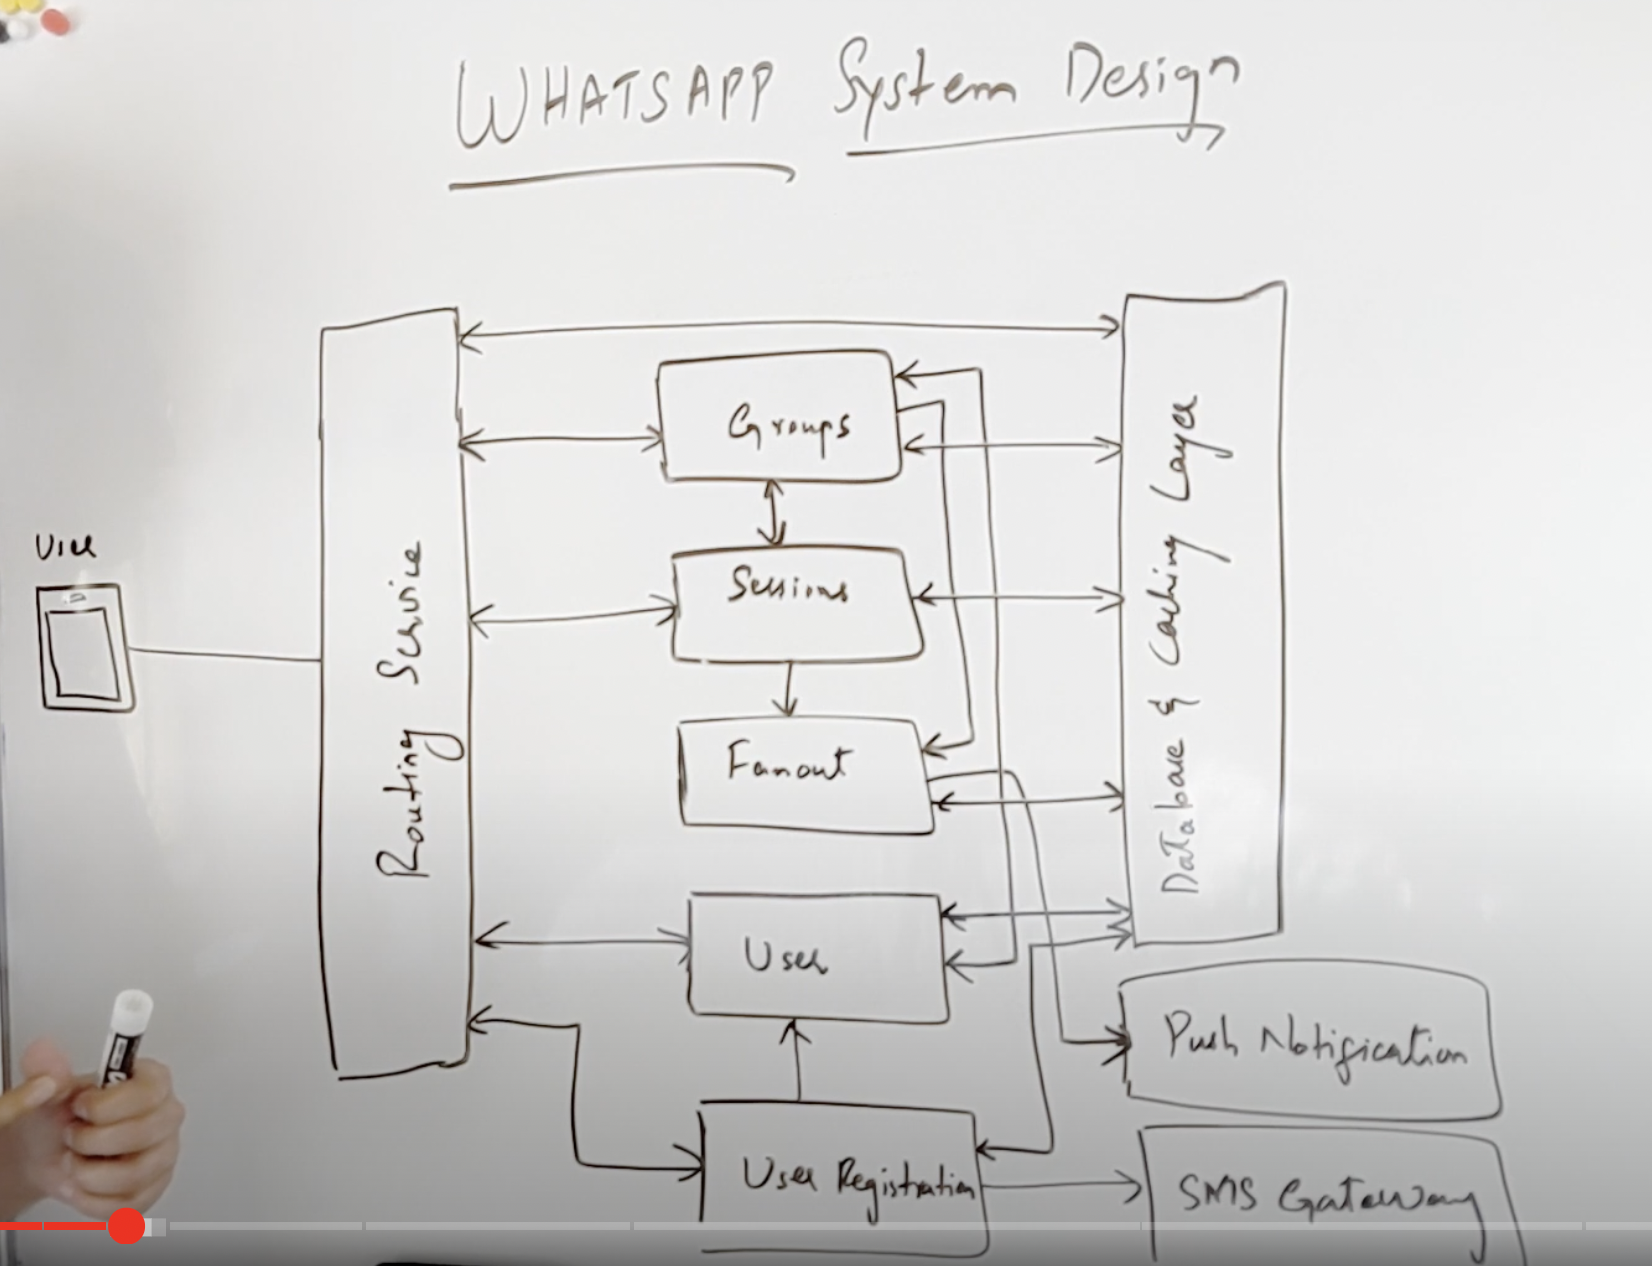 WHATSAPP System Design
User
Routing Service
Groups
Sessions
Fanout
User
User Registration
Database & Caching Layer
Push Notification
SMS Gateway